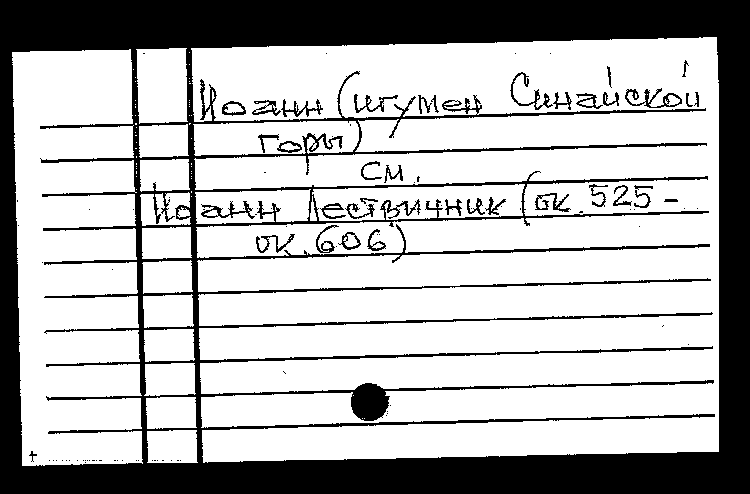 Иоанн (игумен Синайской
горы)
см.
Иоанн Лествичник (ок. 525 -
ок. 606)